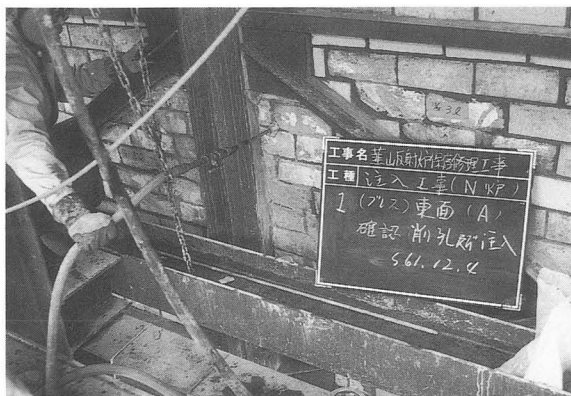 工事名 韮山反射炉保存修理工事
工種 注入工事(NKP)
1 (プレス) 東面 (A)
確認削孔跡注入
S61.12.4